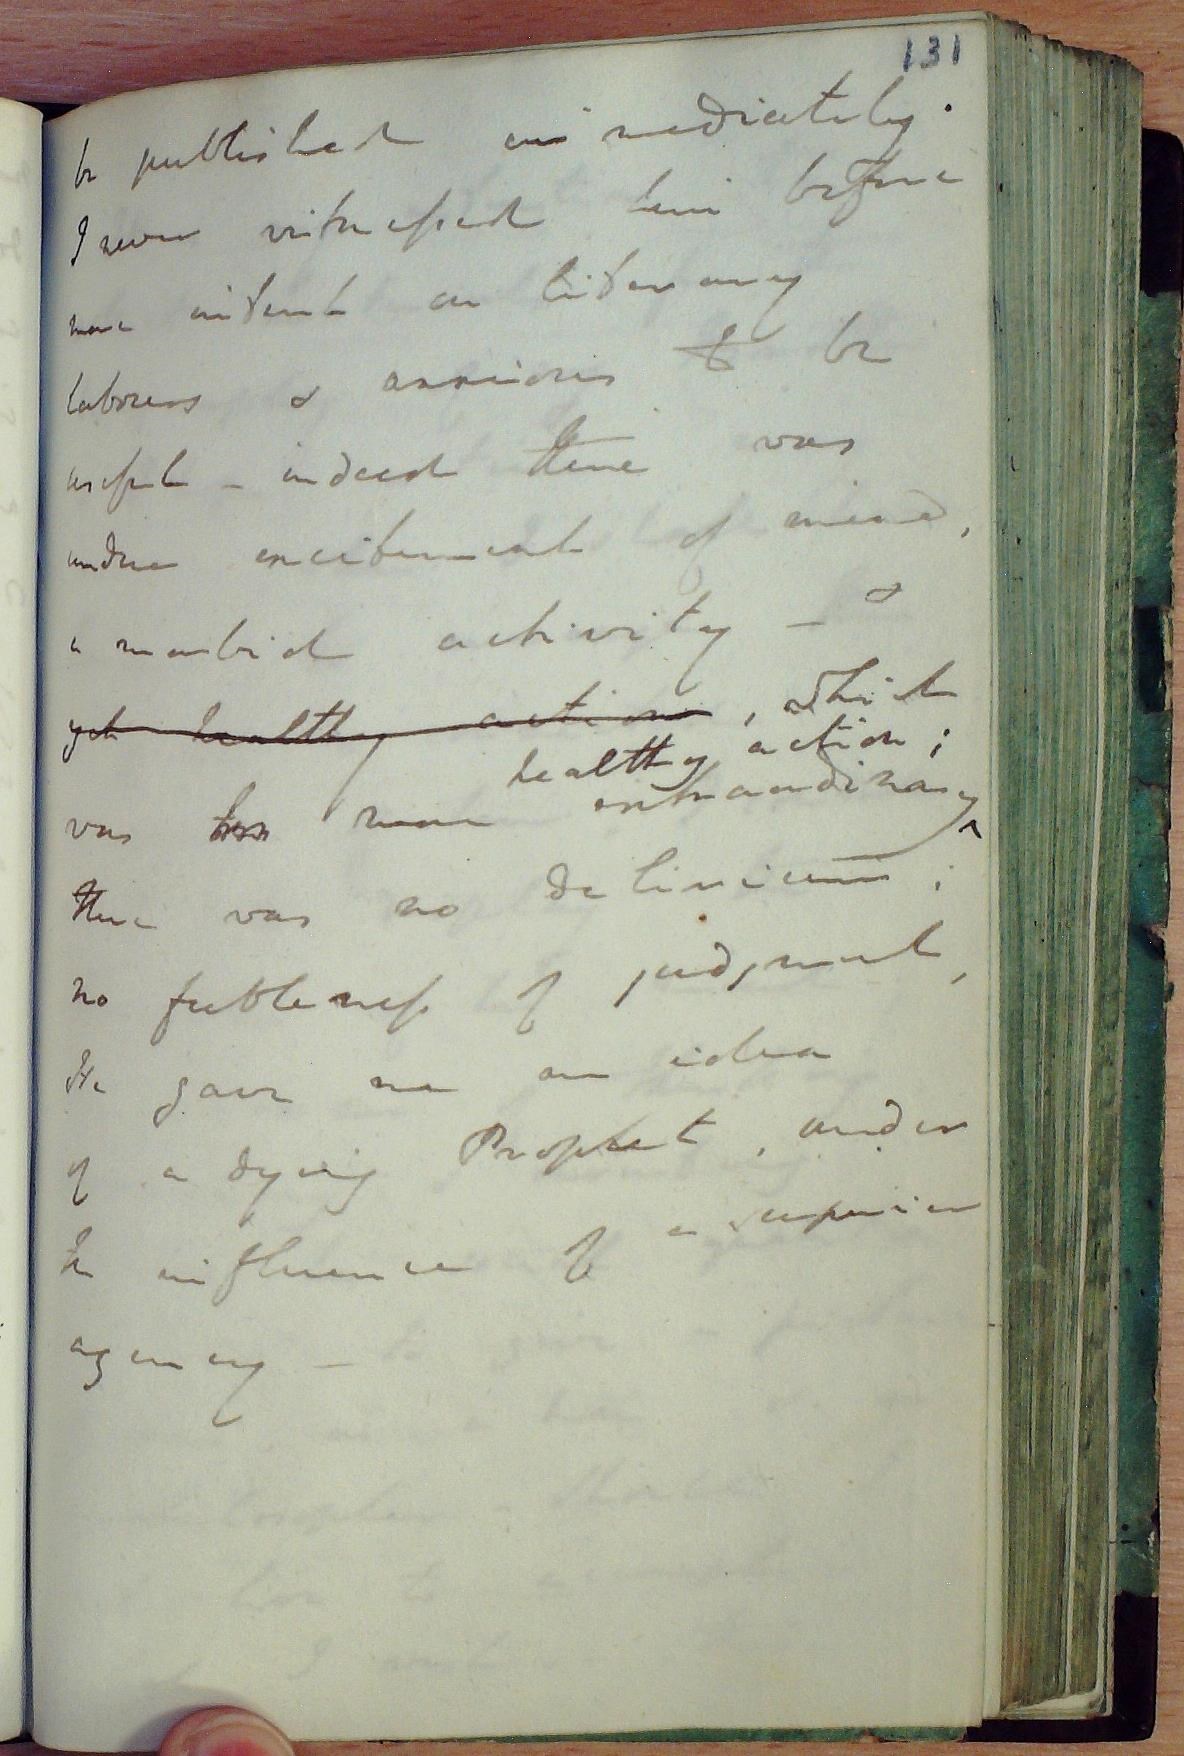 131
be published immediately.
I never witnessed him before
more intent on literary
labours & anxious to be
useful - indeed there was
undue excitement of mind,
a morbid activity - &
yet healthy action, which
healthy action;
was more extraordinary
there was no delirium;
no feebleness of judgment,
He gave me an idea
of a dying Prophet, under
the influence of a superior
agency -